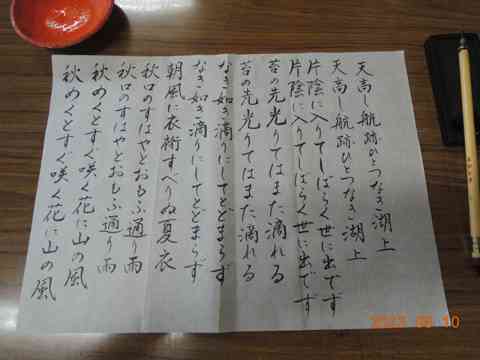 天高し航跡ひとつなき湖上
天高し航跡ひとつなき湖上
片陰に入りてしばらく世に出でず
片陰に入りてしばらく世に出でず
苔の先光りてはまた滴れる
苔の先光りてはまた滴れる
なき如き滴りにしてとどまらず
なき如き滴りにしてとどまらず
朝風に衣桁すべりぬ夏衣
秋口のすはやとおもふ通り雨
秋口のすはやとおもふ通り雨
秋めくとすぐ咲く花に山の風
秋めくとすぐ咲く花に山の風